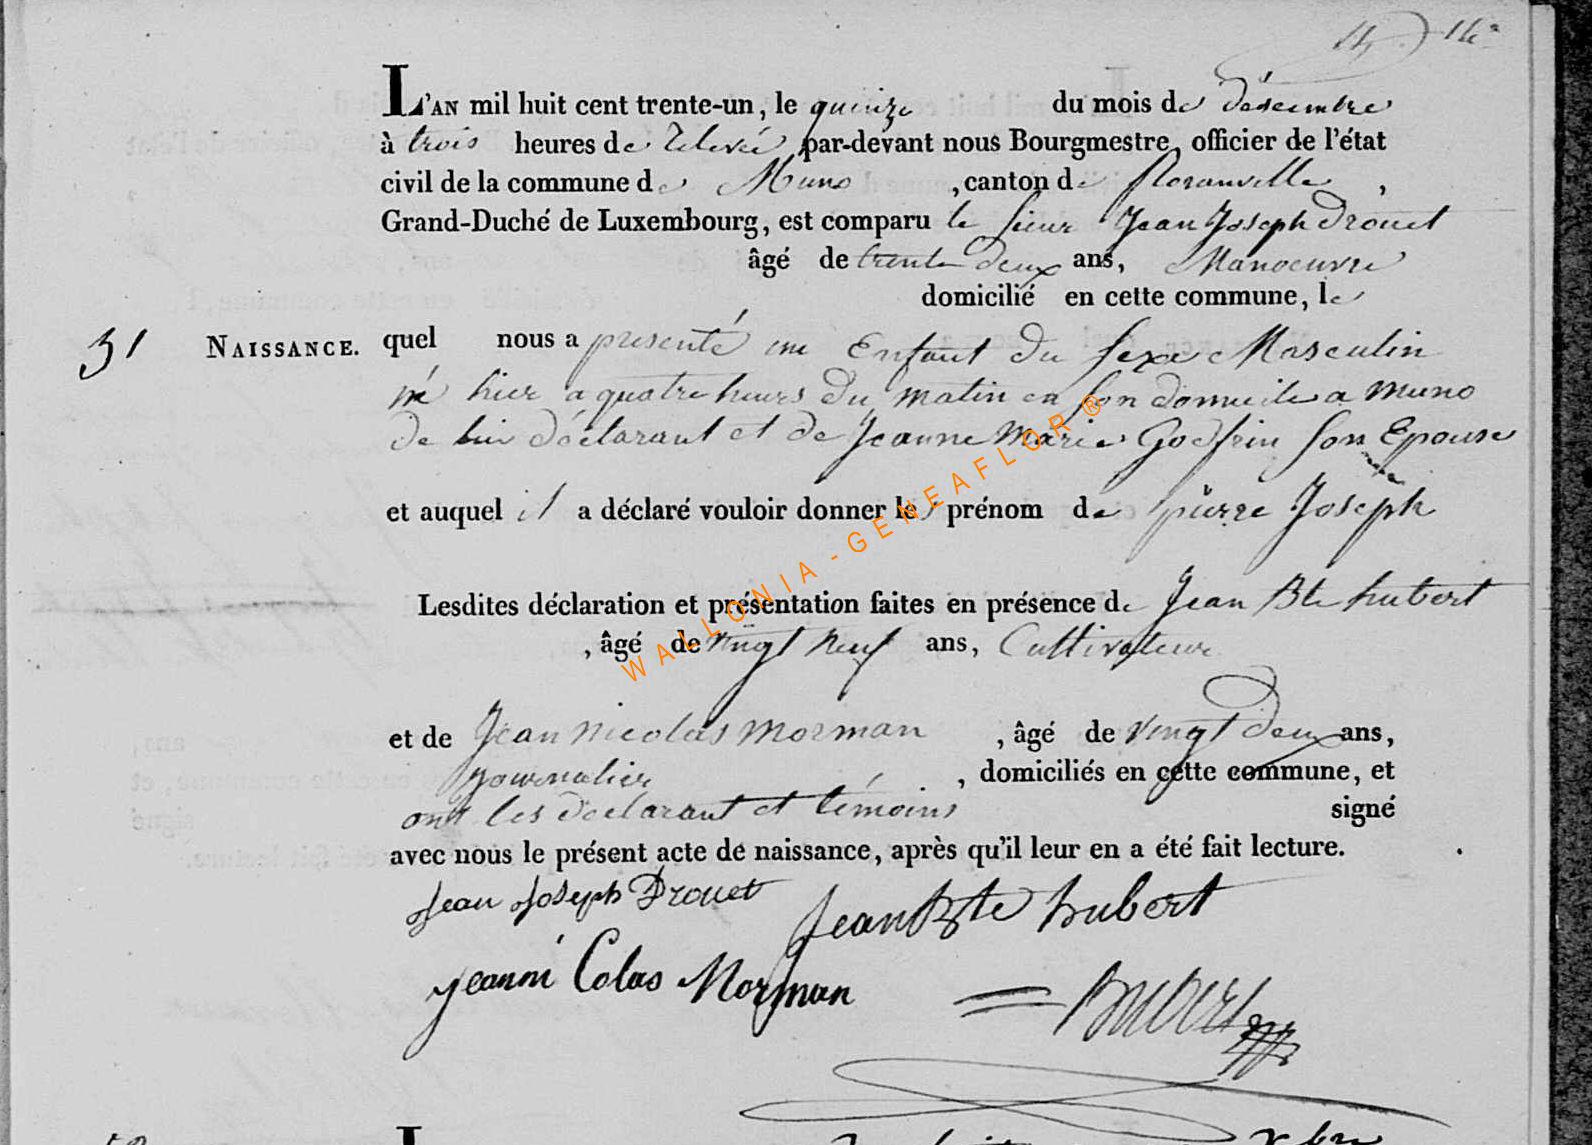 14.) 14e
L'AN mil huit cent trente-un, le quinze du mois de désembre
à trois heures de relevée par-devant nous Bourgmestre, officier de l'état
civil de la commune de Muno, canton de floranville,
Grand-Duché de Luxembourg, est comparu le sieur Jean Joseph Drouet
âgé de trente deux ans, Manoeuvre
domicilié en cette commune, le
31 NAISSANCE. quel nous a presenté un Enfant du sexe Masculin
né hier a quatre heures du matin en son domicile a muno
de lui déclarant et de Jeanne Marie Godfrin son Epouse
et auquel il a déclaré vouloir donner les prénom de pierre Joseph
WALLONIA-GENEAFLOR ®
Lesdites déclaration et présentation faites en présence de Jean Bte hubert
, âgé de vingt neuf ans, Cultivateur
et de Jean nicolas morman, âgé de vingt deux ans,
journalier, domiciliés en cette commune, et
ont les déclarant et témoins signé
avec nous le présent acte de naissance, après qu'il leur en a été fait lecture.
Jean Joseph Drouet Jean Bte hubert
jeanni Colas Morman